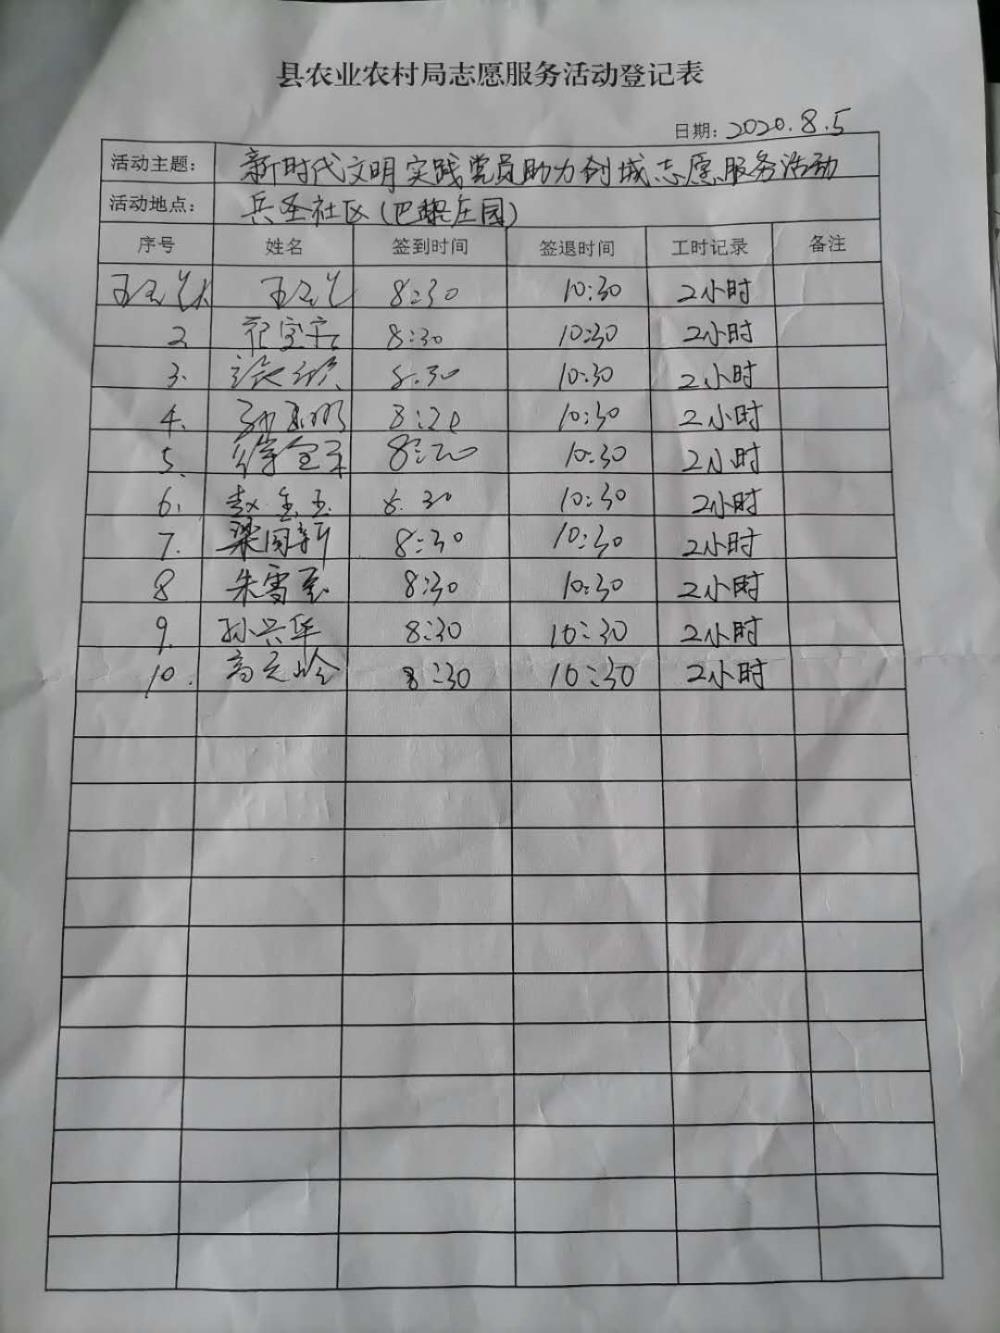 县农业农村局志愿服务活动登记表
日期：2020.8.5
活动主题： 新时代文明实践党员助力创城志愿服务活动
活动地点： 兵圣社区（巴黎庄园）
序号 姓名 签到时间 签退时间 工时记录 备注
8:30 10:30 2小时
2 8:30 10:30 2小时
3. 8.30 10:30 2小时
4. 10:30 2小时
5. 10:30 2小时
6. 赵 8.30 10:30 2小时
7. 梁国新 8:30 10:30 2小时
8 朱雪 8:30 10:30 2小时
9. 孙兴华 8:30 10:30 2小时
10. 高元岭 8:30 10:30 2小时